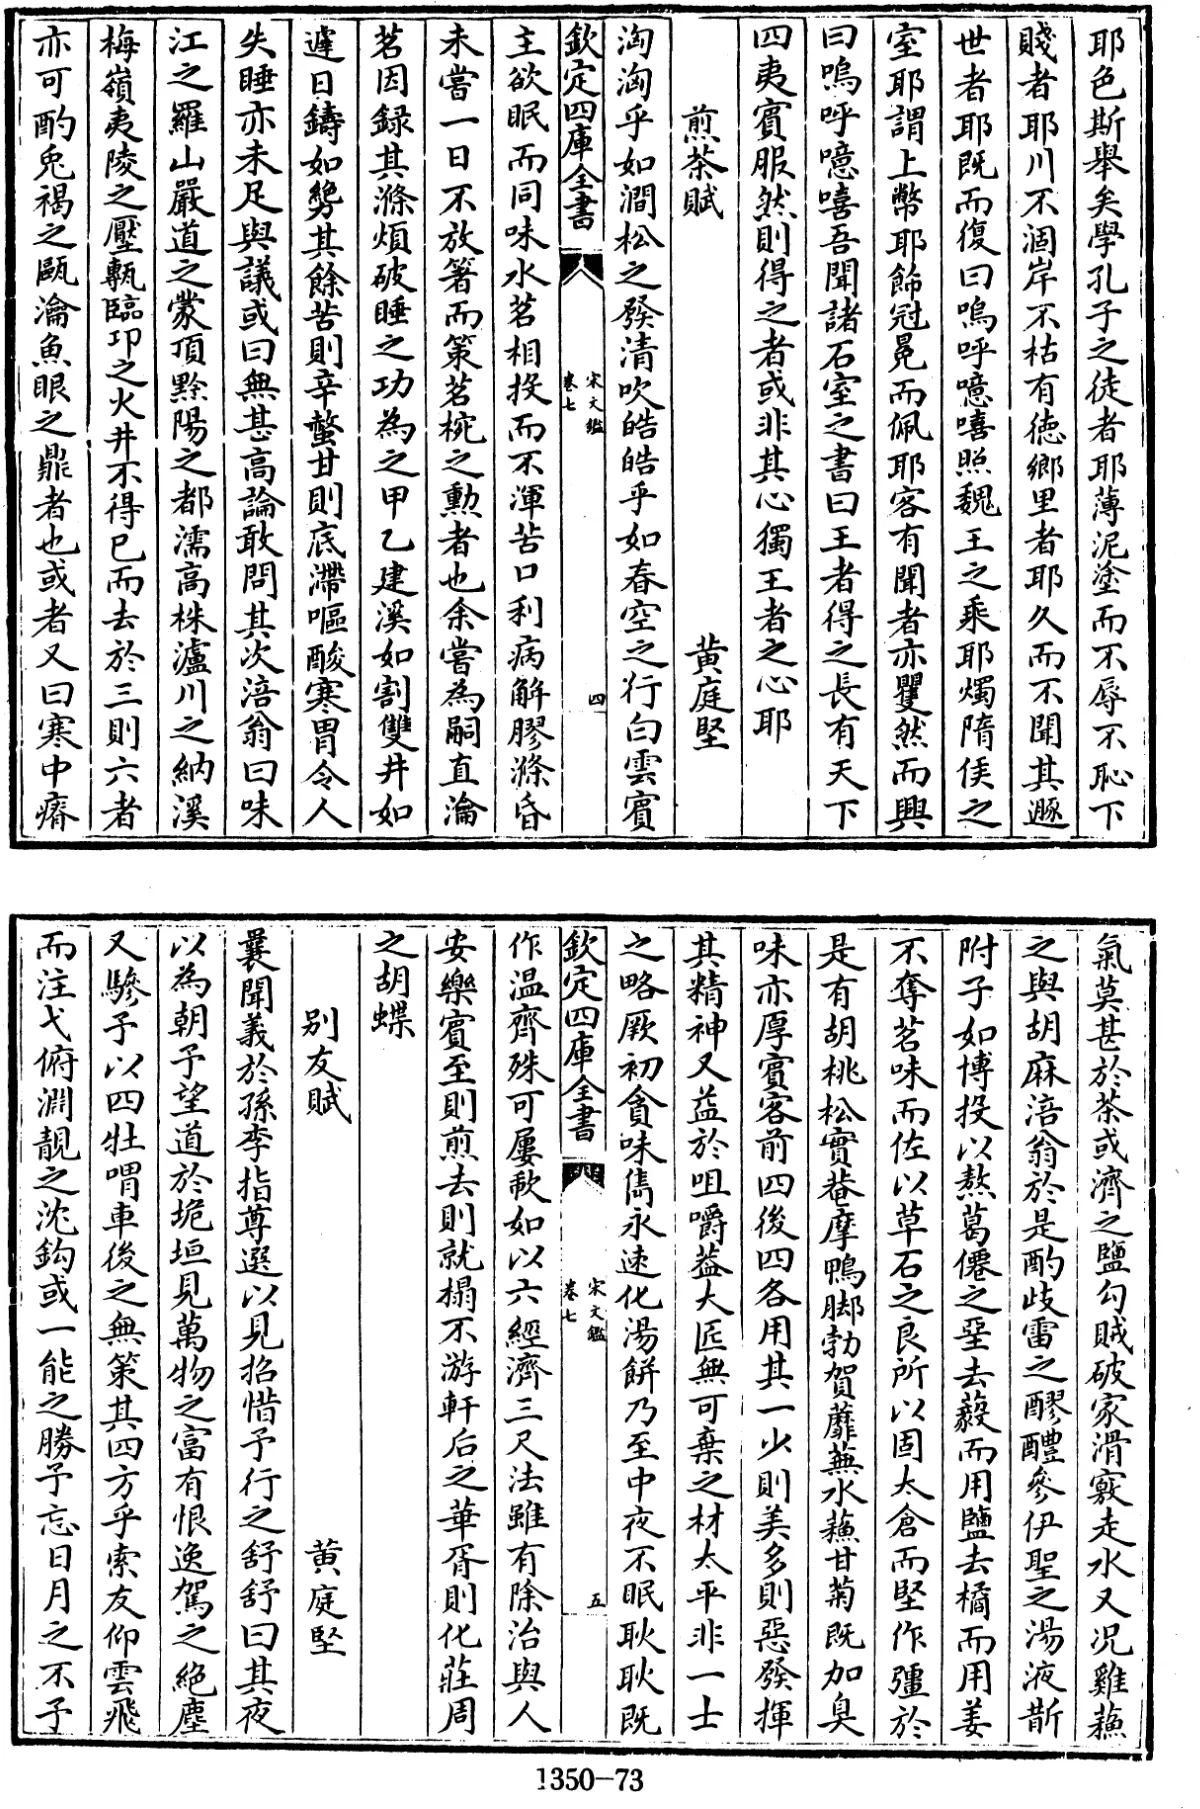 耶色斯舉矣學孔子之徒者耶薄泥塗而不辱不恥下
賤者耶川不涸岸不枯有徳鄉里者耶久而不聞其遯
世者耶既而復曰嗚呼噫嘻照魏王之乘耶燭隋侯之
室耶謂上幣耶飾冠冕而佩耶客有聞者亦瞿然而興
曰嗚呼噫嘻吾聞諸石室之書曰王者得之長有天下
四夷賓服然則得之者或非其心獨王者之心耶
煎茶賦 黄庭堅
洶洶乎如澗松之發清吹皓皓乎如春空之行白雲賓
欽定四庫全書 宋文鑑 卷七 四
主欲眠而同味水茗相投而不渾苦口利病解膠滌昏
未嘗一日不放箸而策茗椀之勲者也余嘗為嗣直瀹
茗因録其滌煩破睡之功為之甲乙建溪如割雙井如
遽日鑄如㔢其餘苦則辛螫甘則底滯嘔酸寒胃令人
失睡亦未足與議或曰無甚高論敢問其次涪翁曰味
江之羅山嚴道之蒙頂黔陽之都濡高株瀘川之納溪
梅嶺夷陵之壓甎臨邛之火井不得已而去於三則六者
亦可酌兎褐之甌瀹魚眼之鼎者也或者又曰寒中瘠
氣莫甚於茶或濟之鹽勾賊破家滑竅走水又况雞蘓
之與胡麻涪翁於是酌歧雷之醪醴參伊聖之湯液斮
附子如博投以熬葛僊之堊去藙而用鹽去橘而用姜
不奪茗味而佐以草石之良所以固太倉而堅作彊於
是有胡桃松實菴摩鴨脚勃賀蘼蕪水蘓甘菊既加臭
味亦厚賓客前四後四各用其一少則美多則惡發揮
其精神又益於咀嚼葢大匠無可棄之材太平非一士
之略厥初貪味雋永速化湯餅乃至中夜不眠耿耿既
欽定四庫全書 宋文鑑 卷七 五
作温齊殊可屢歃如以六經濟三尺法雖有除治與人
安樂賓至則煎去則就榻不游軒后之華胥則化莊周
之胡蝶
别友賦 黄庭堅
曩聞義於孫李指尊選以見招惜予行之舒舒曰其夜
以為朝予望道於垝垣見萬物之富有恨逸駕之絶塵
又驂予以四牡喟車後之無策其四方乎索友仰雲飛
而注弋俯淵靚之沈鈎或一能之勝予忘日月之不予
1350-73